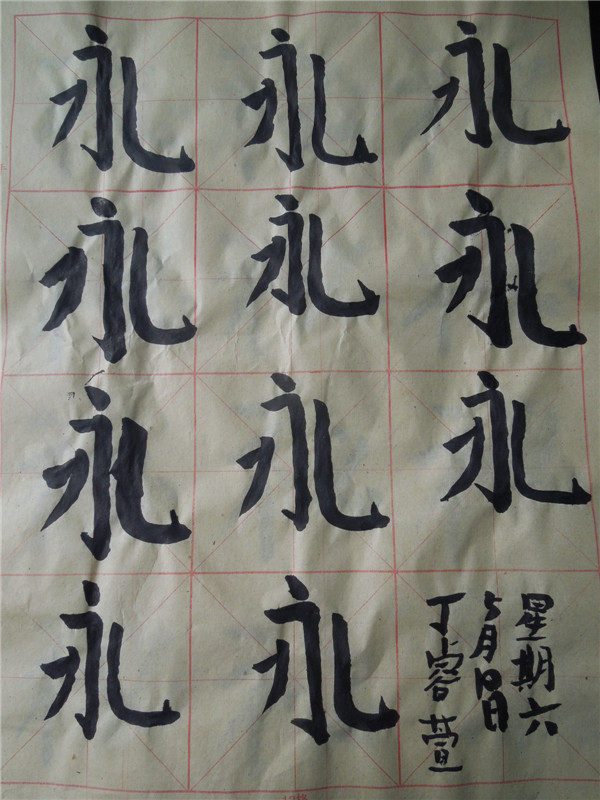 永永永
永永永
永永永
永永
星期六
5月10日
丁睿萱